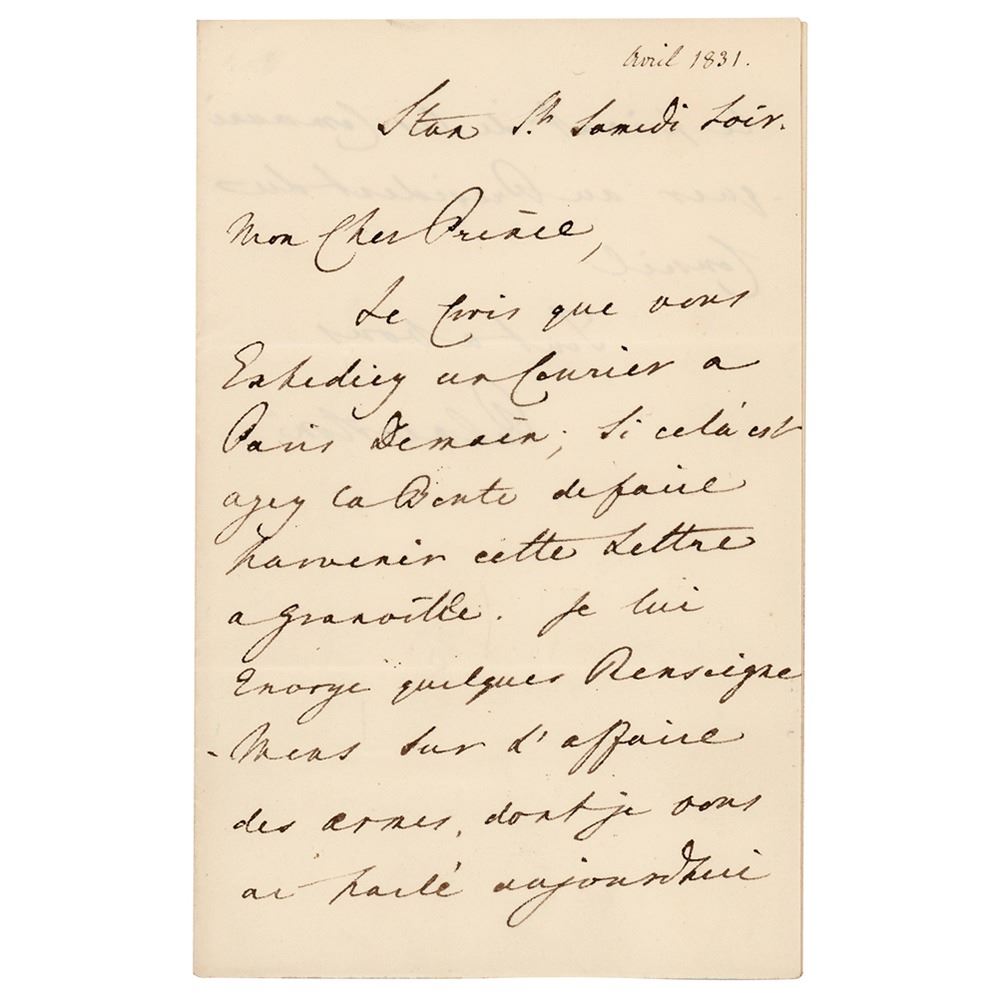 Avril 1831.
Stan St. Samedi Soir.
Mon Cher Prince,
Je Crois que vous
Expediez un Courier a
Paris Demain; Si celà est
ayez la Bonte de faire
parvenir cette Lettre
a Granville. Je lui
Envoye quelques Renseigne
-mens Sur L'affaire
des armes, dont je vous
ai parlé aujourdhui